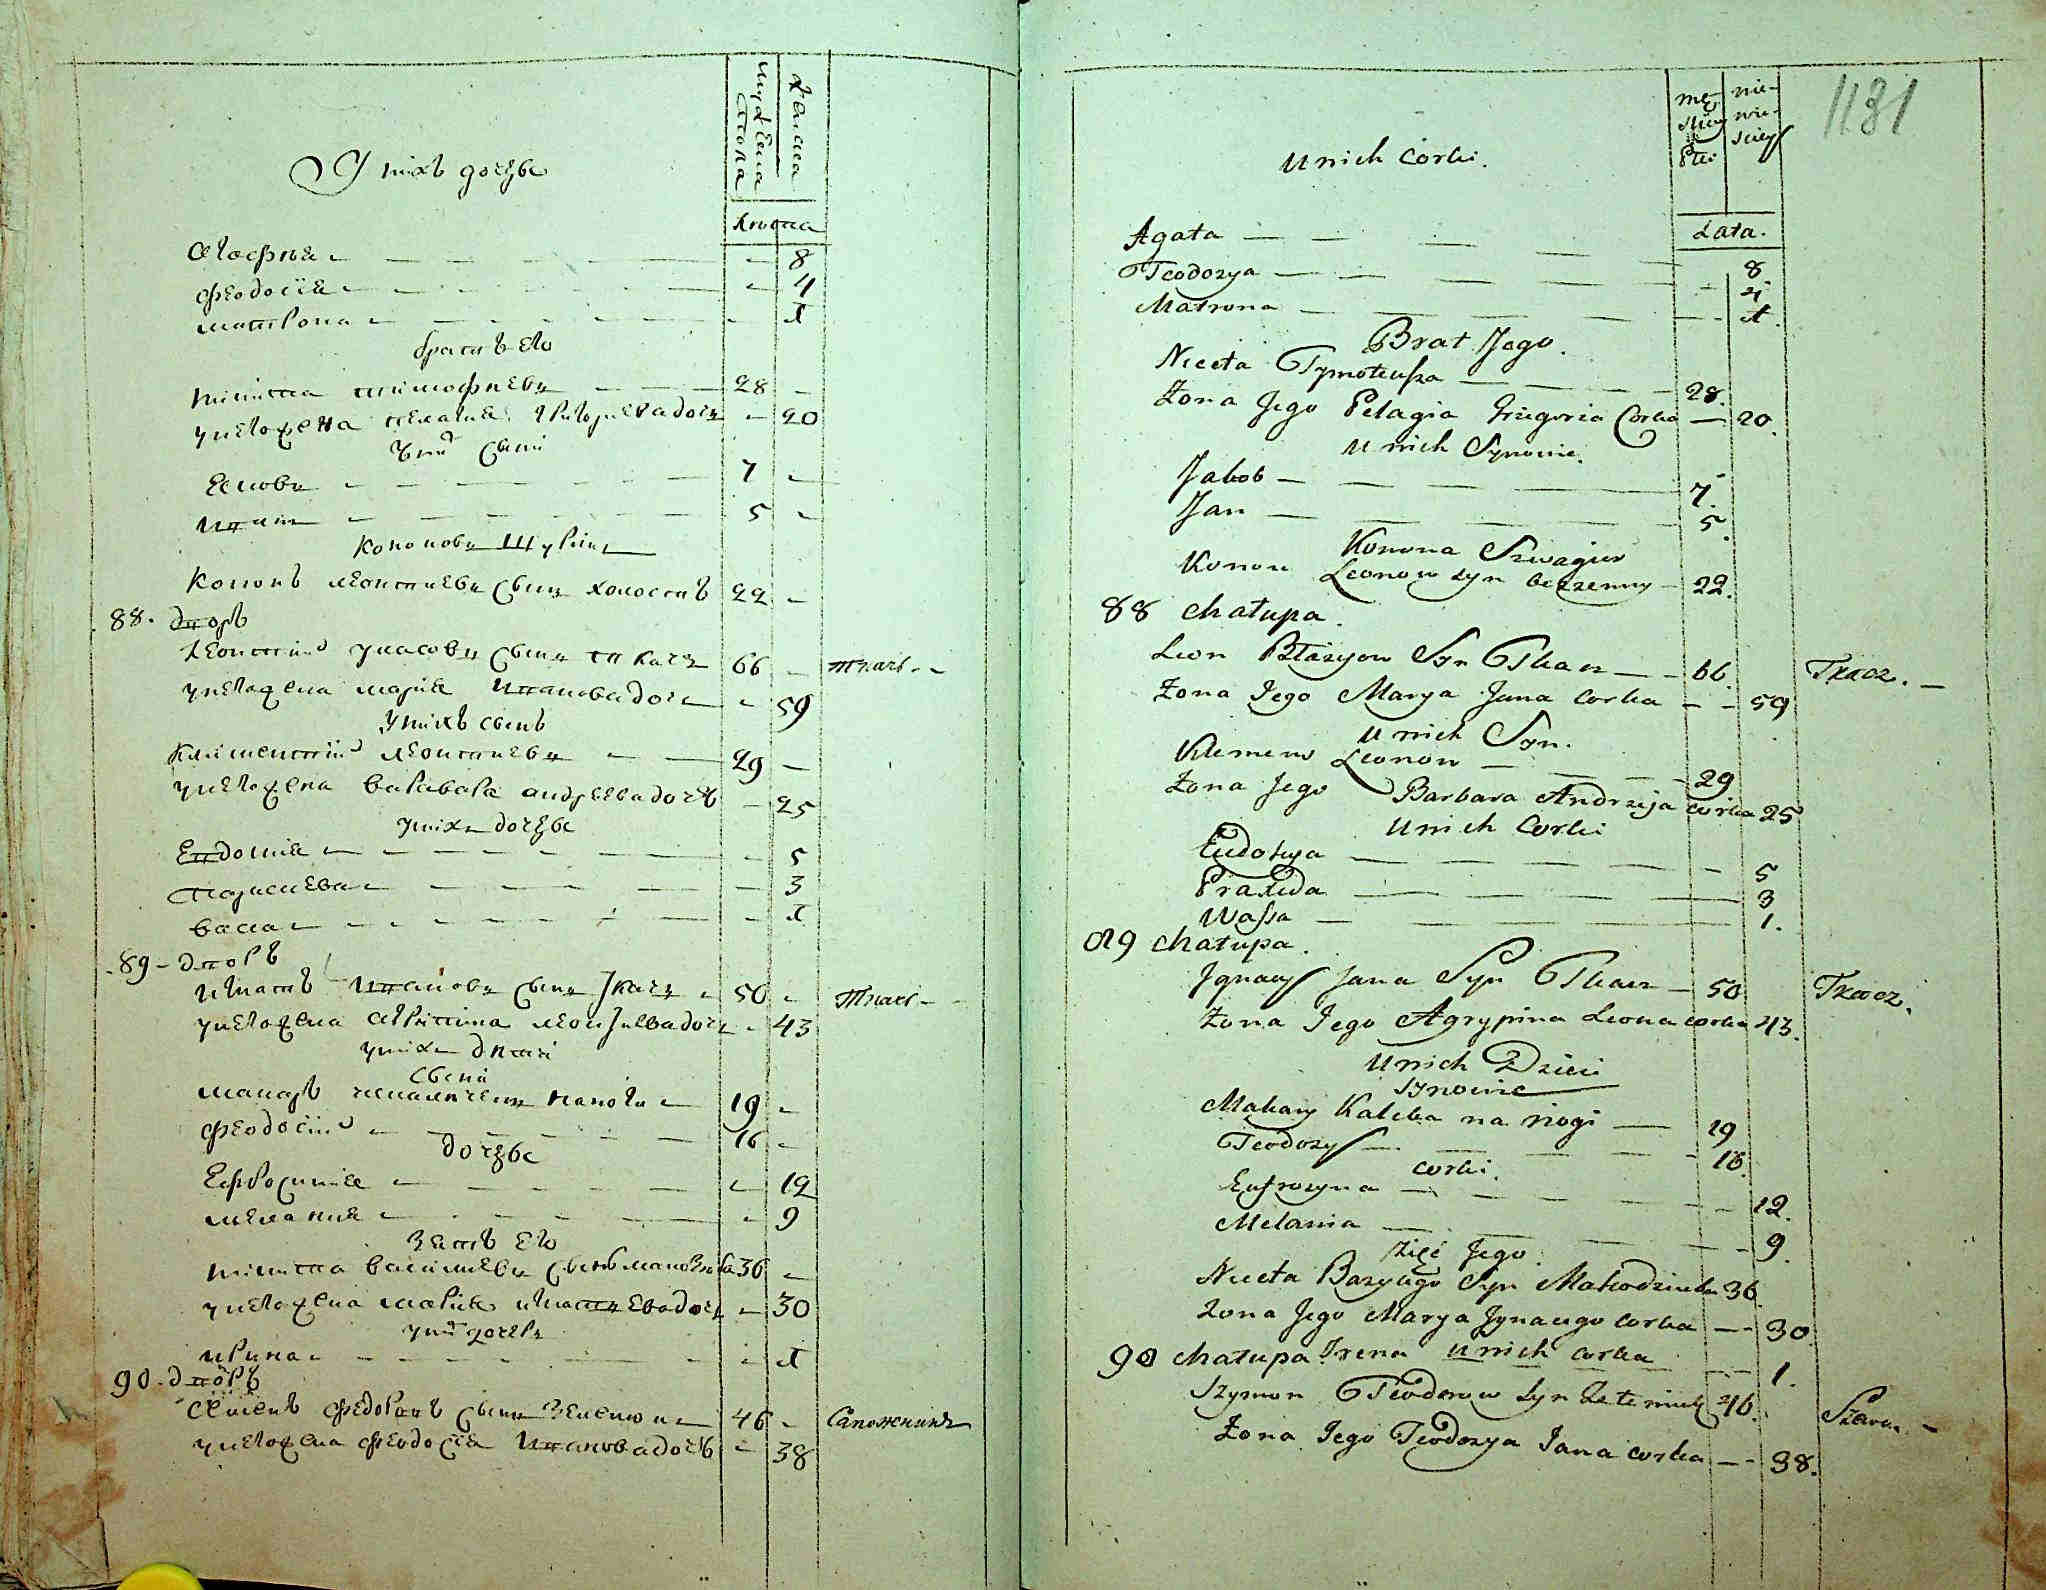 У нихъ дочѣри
мужеска
пола
женска
лѣта
Агафия — 8
Феодосiя — 4
Матрона — 1
братъ его
Никита Тимофиевъ — 28
у него жена Пелагия Григориева дочь — 20
у них сыни
Яковъ — 7
Иван — 5
Кононовъ Шуринъ
Кононъ Леонтиевъ сынъ холостъ 22
88. дворъ
Леонтий Уласовъ сынъ ткачъ 66 — ткачъ —
у него жена Мария Иванова дочь — 59
у нихъ сынъ
Климентий Леонтиевъ — 29 —
у него жена Варвара Андреева дочь — 25
у нихъ дочѣри
Евдокия — 5
Парасцева — 3
Васса — 1
89 – дворъ
Игнатъ Ивановъ сынъ ткачъ 50 ткачъ —
у него жена Агрипина Леонтиева дочь — 43
у нихъ дѣти
сыни
Макаръ 19
Феодосiй — 16
дочѣри
Ефросиния — 12
Мелания — 9
Зять его
Никита Василиевъ сынъ 36
у него жена Мария Игнатиева дочь — 30
у них дочеръ
Ирина — 1
90. дворъ
Семенъ Федоровъ сынъ 46 — Сапожникъ
у него жена Феодосiя Иванова дочь — 38
1131
U nich Corki.
męz
skiey
płci
nie-
wie-
sciey
Lata.
Agata — 8.
Teodozya — 4.
Matrona — 1.
Brat Jego.
Niceta Tymoteusza — 28.
Zona Jego Pelagia Grzegorza Corka — 20.
U nich Synowie.
Jakob — 7.
Jan — 5.
Konona Szwagier
Konon Leonow syn bezzenny — 22.
88 Chałupa.
Leon Błazyow Syn Tkacz — 66. Tkacz. —
Zona Jego Marya Jana corka — 59
U nich Syn.
Klemens Leonow — 29
Zona Jego Barbara Andrzeja corka 25
U nich Corki
Eudokya — 5
Praxeda — 3
Wassa — 1.
89 Chałupa.
Jgnacy Jana Syn Tkacz — 50 Tkacz.
Zona Jego Agrypina Leona corka 43.
U nich Dzieci
Synowie
Makary Kaleka na nogi — 19
Teodozy — 16
corki.
Eufrozyna — 12.
Melania — 9
Zięć Jego
Niceta Bazylego Syn 36.
Zona Jego Marya Jgnacego Corka — 30
90 Chałupa Irena U nich corka — 1.
Szymon Teodorow Syn 46. Szewc. —
Zona Jego Teodozya Jana corka — 38.